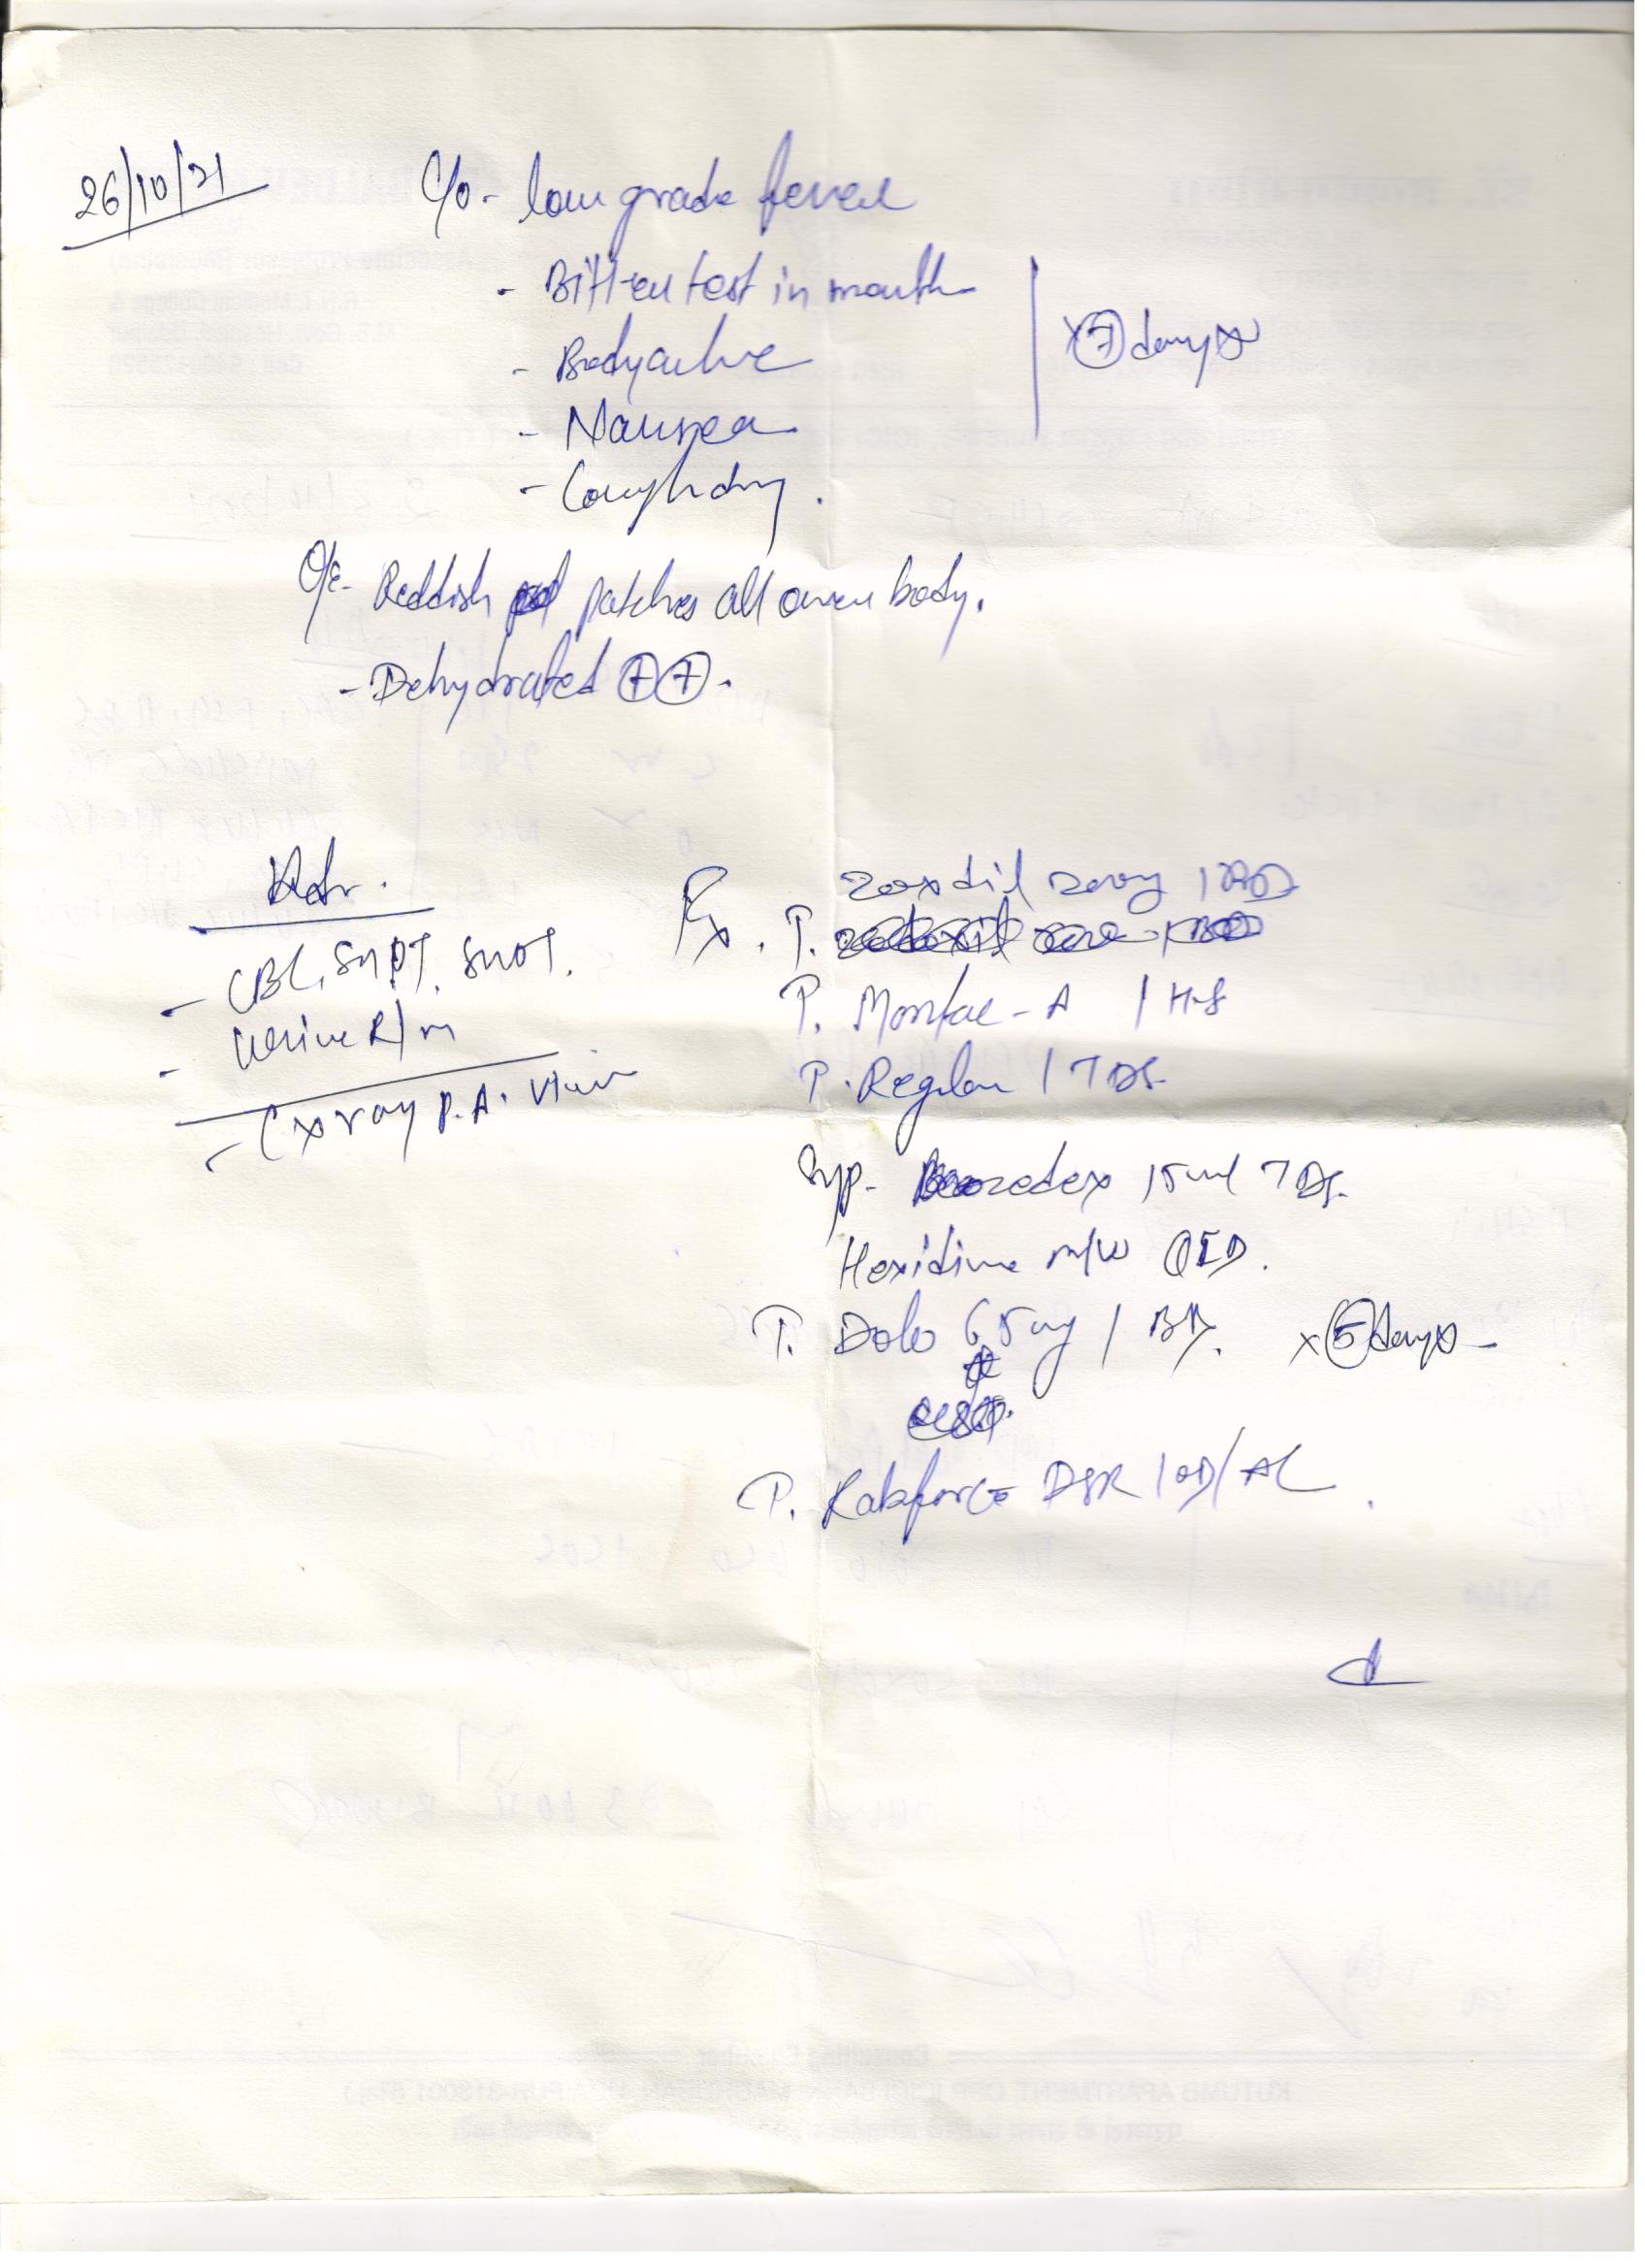 26/10/21
C/o - low grade fever
- Bitter test in mouth
- Bodyache
- Nausea
x 7 days
- Cough dry.
O/E - Reddish patches all over body.
- Dehydrated + +.
Adv.
- CBC, SGPT, SGOT.
- Urine R/m
- C x ray P.A. View
Rx.
200mg 1 BD
T.
T. Montac - A 1 HS
T. Reglan 1 TDS
Syp. 15ml TDS.
Hexidine m/w QID.
T. Dolo 65mg 1 BD. x 5 days
T. Rabforce DSR 1 OD/AC